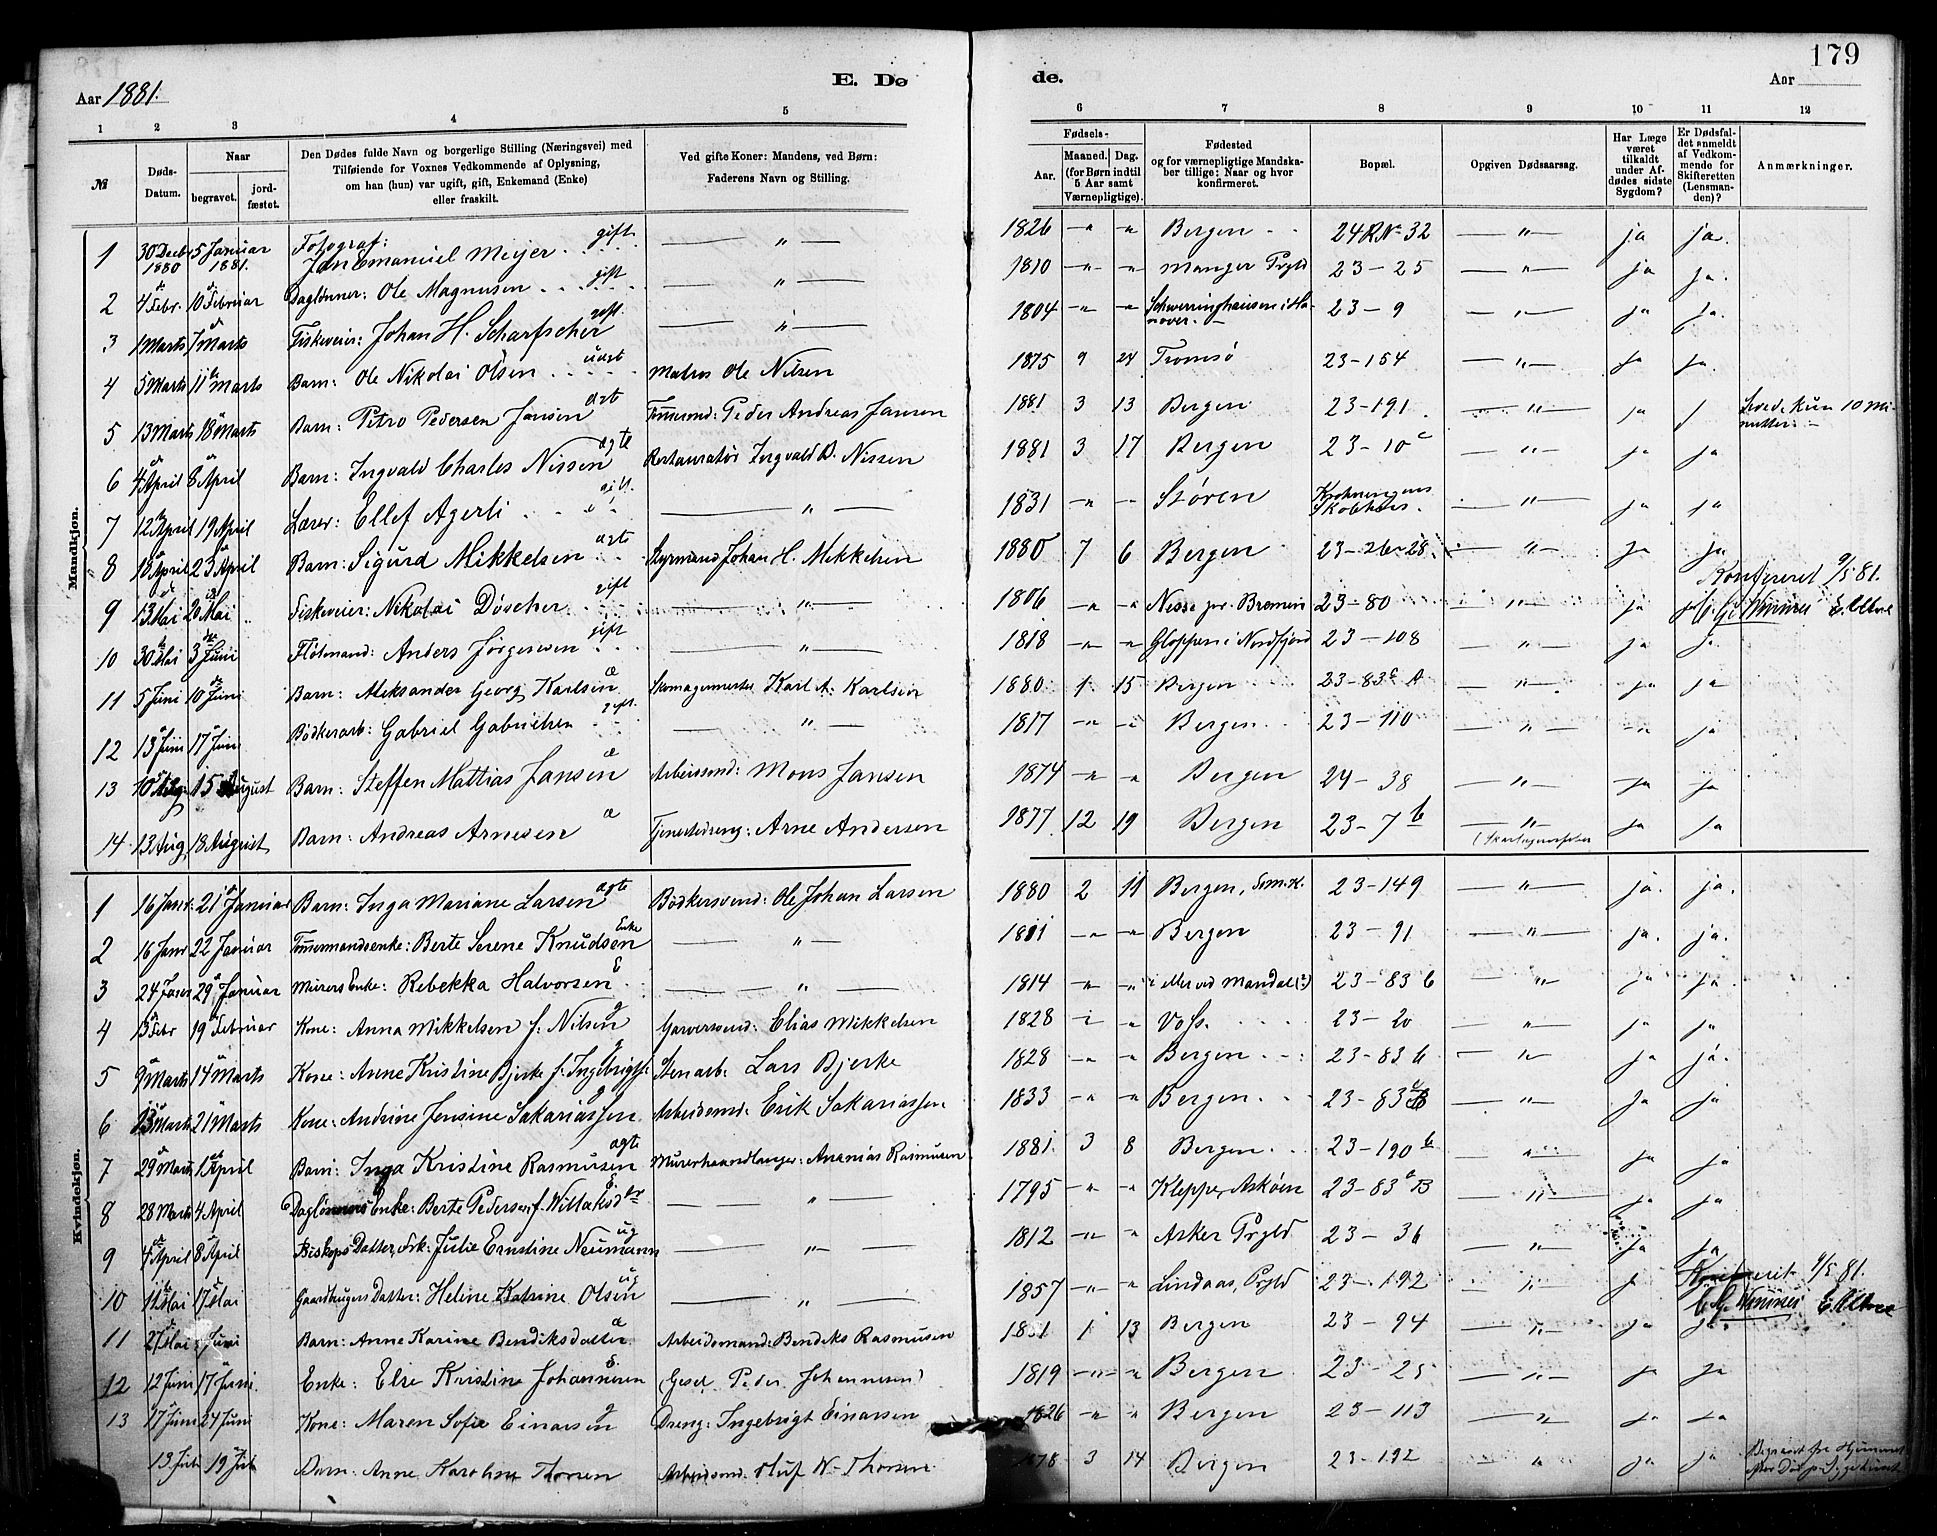 179
Aar 1881.
E. Dø
de.
Aar
1 2 3 4 5
6 7 8 9 10 11 12
№
Døds-
Datum.
Naar
begravet.
jord-
fæstet.
Den Dødes fulde Navn og borgerlige Stilling (Næringsvei) med
Tilføiende for Voxnes Vedkommende af Oplysning,
om han (hun) var ugift, gift, Enkemand (Enke)
eller fraskilt.
Ved gifte Koner: Mandens, ved Børn:
Faderens Navn og Stilling.
Fødsels-
Aar.
Maaned. Dag.
(for Børn indtil
5 Aar samt
Værnepligtige).
Fødested
og for værnepligtige Mandska-
ber tillige: Naar og hvor
konfirmeret.
Bopæl.
Opgiven Dødsaarsag.
Har Læge
været
tilkaldt
under Af-
dødes sidste
Sygdom?
Er Dødsfal-
det anmeldt
af Vedkom-
mende for
Skifteretten
(Lensman-
den)?
Anmærkninger.
Mandkjøn.
1 30 Decb 1880 5 Januar 1881. Fotograf: Jan Emanuel Meyer gift — " — 1826 " " Bergen 24 R № 32 — " — ja ja.
2 4 Febr. 10 Februar Daglønner: Ole Magnusen gift — " — 1810 " " Manger Prgld 23-25 — " — ja ja.
3 1 Marts 7 Marts Fiskeveier: Johan H. Scharfscher gift — " — 1804 " " 23-9 — " — ja ja.
4 5 Marts 11 Marts Barn: Ole Nikolai Olsen Matros Ole Nilsen 1875 9 24 Tromsø 23-154 — " — ja ja.
5 13 Marts 18 Marts Barn: Petro Pedersen Jansen Tømmermd: Peder Andreas Jansen 1881 3 13 Bergen 23-191 — " — ja Levede kun 10 Mi-
nutter.
6 4 April 8 April Barn: Ingvald Charles Nissen ægte Restauratør Ingvald B. Nissen 1881 3 17 Bergen 23-10 c — " — ja ja
7 12 April 19 April Lærer: Ellef Agerli gift — " — 1831 " " Støren — " — ja ja
8 18 April 23 April Barn: Sigurd Mikkelsen ægte Styrmand Johan H. Mikkelsen 1880 7 6 Bergen 23-26-28 — " — ja ja
Konfereret 9/5 81.
9 13 Mai 20 Mai Fiskeveier: Nikolai Døscher gift — " — 1806 " " Nesse pr. Bremen 23-80 — " — ja
10 30 Mai 3 Juni Fløtmand: Anders Jørgensen gift — " — 1818 " " Gloppen i Nordfjord 23-108 — " — ja ja
11 5 Juni 10 Juni Barn: Aleksander Georg Karlsen æ Skomagermester Karl A. Karlsen 1880 1 15 Bergen 23-83 c A — " — ja ja
12 13 Juni 17 Juni Bødkerarb: Gabriel Gabrielsen gift — " — 1817 " " Bergen 23-110 — " — " ja
13 10 Aug 15 August Barn: Steffen Mattias Jansen æ Arbeidsmd: Mons Jansen 1874 " " Bergen 24-38 — " — ja ja
14 13 Aug. 18 August Barn: Andreas Arnesen æ Tjenestedreng: Arne Andersen 1877 12 19 Bergen 23-7 b — " — (Skarlagensfeber ja ja
Kvindekjøn.
1 16 Janr 21 Januar Barn: Inga Mariane Larsen ægte Bødkersvend: Ole Johan Larsen 1880 2 11 Bergen, 23-149 — " — ja. ja.
2 16 Janr 22 Januar Tømmermandsenke: Berte Serene Knudsen Enke — " — 1811 " " Bergen 23-91 — " — ja. ja.
3 24 Janr 29 Januar Murers Enke: Rebekka Halvorsen E — " — 1814 " " i eller ved Mandal (?) 23-83 b — " — ja ja
4 13 Febr 19 Februar Kone: Anna Mikkelsen f. Nilsen g Garversvend: Elias Mikkelsen 1828 " " Voss. 23-20 — " — ja ja
5 9 Marts 14 Marts Kone: Anne Kristine Bjerke f. Ingebrigtsen g Stenarb: Lars Bjerke 1828 " " Bergen 23-83 b — " — ja ja.
6 13 Marts 21 Marts Kone: Andrine Jensine Sakariassen g Arbeidsmd: Erik Sakariassen 1833 " " Bergen 23-83 — " — ja ja
7 29 Marts 1 April Barn: Inga Kristine Rasmusen ægte Murerhaandlanger: Ananias Rasmusen 1881 3 8 Bergen 23-190 b — " — ja ja
8 28 Marts 4 April Daglønners Enke: Berte Pedersen f. Willaksdtr E — " — 1795 " " Kleppe, Askøen 23-83 B — " — ja ja
9 4 April 8 April Biskops Datter, Frk: Julie Ernstine Neumann ug — " — 1812 " " Asker Prgld 23-36 — " — ja ja
Konfereret 9/5 81.
10 11 Mai 17 Mai Gaardbrugers Datter: Heline Katrine Olsen ug — " — 1857 " " Lindaas, Prgld 23-192 — " — ja
11 27 Mai Juni Barn: Anne Karine Bendiksdatter æ Arbeidsmand: Bendiks Rasmusen 1881 1 13 Bergen 23-94 — " — ja ja
12 12 Juni 17 Juni Enke: Else Kristine Johannesen E. (Gesel Peder Johannesen) 1819 " " Bergen 23-25 — " — ja ja
13 17 Juni 24 Juni Kone: Maren Sofie Einarsen g Dreng: Ingebrigt Einarsen 1826 " " Bergen 23-113 — " — ja ja
13 Juli 19 Juli Barn: Anne Karoline Thorsen Arbeidsmd: Oluf W. Thorsen 1878 3 14 Bergen 23-192 " ja ja Begravet fra Hjemmet